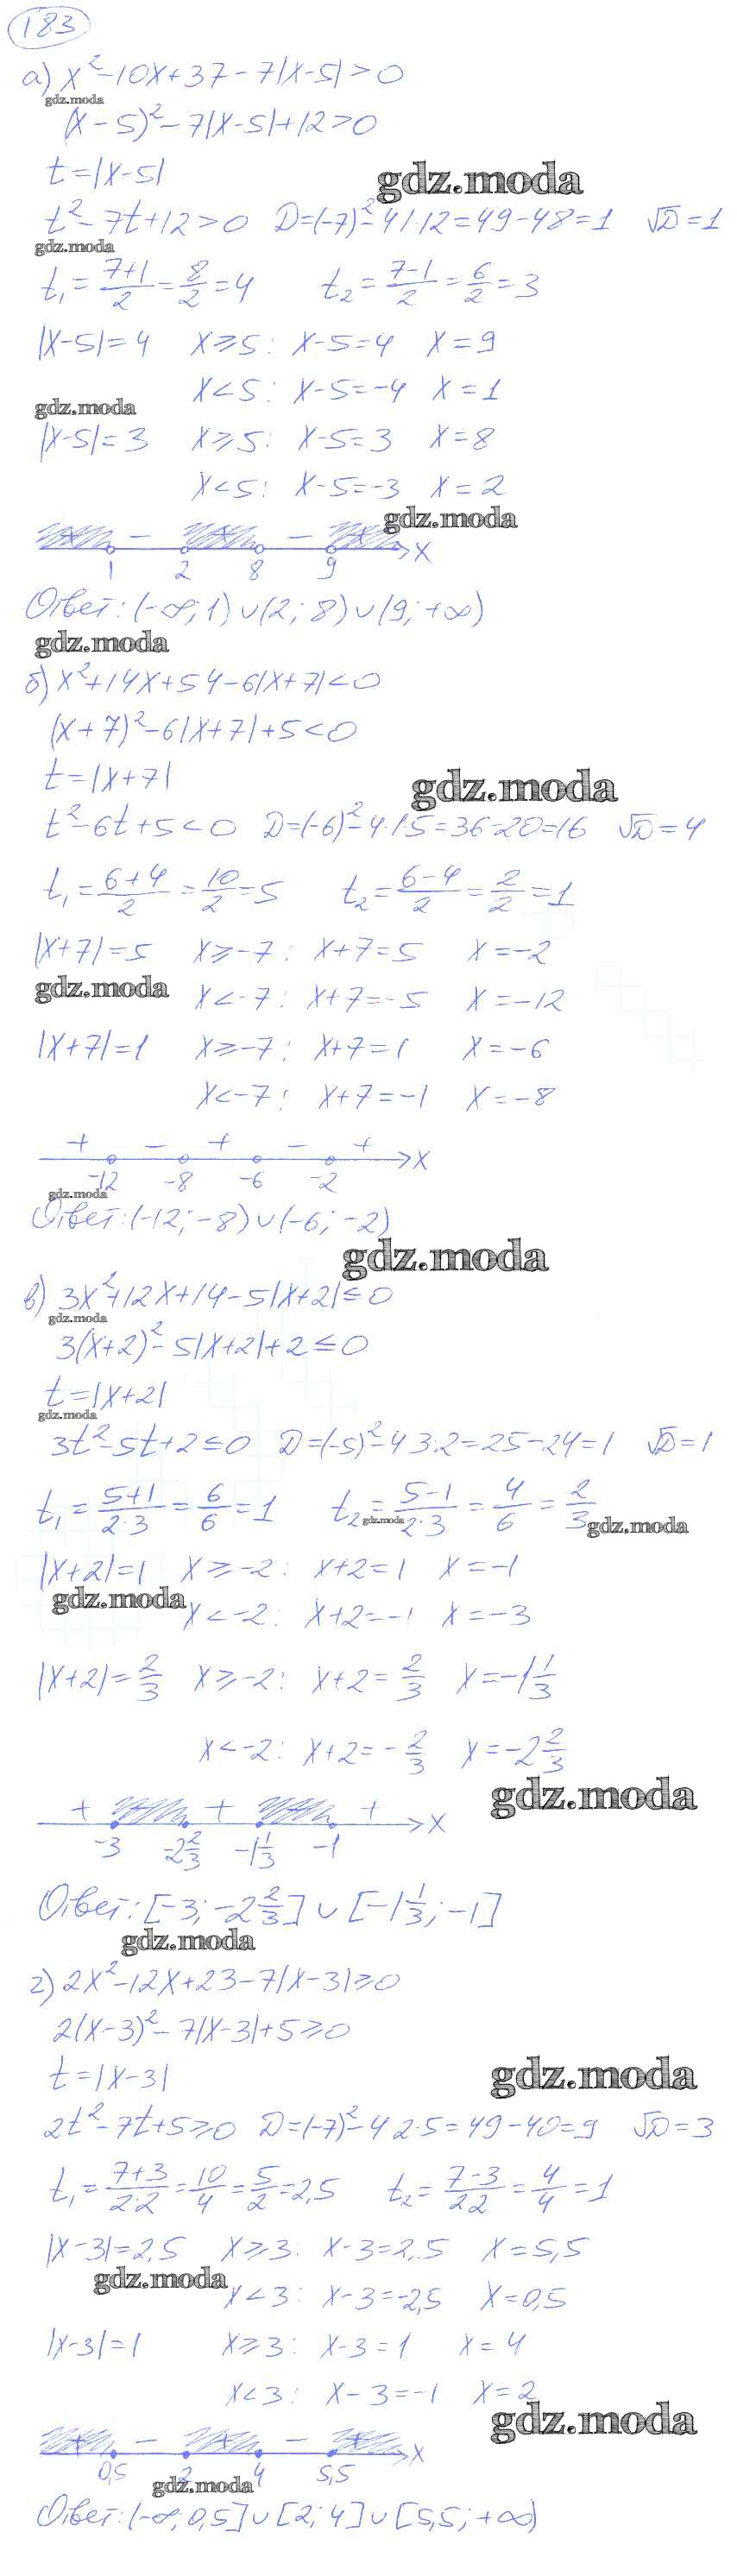 183
а) x²-10x+37-7|x-5|>0
gdz.moda
(x-5)²-7|x-5|+12>0
t=|x-5|
gdz.moda
t²-7t+12>0 D=(-7)²-4·1·12=49-48=1 √D=1
gdz.moda
t₁=(7+1)/2=8/2=4 t₂=(7-1)/2=6/2=3
|x-5|=4 x≥5: x-5=4 x=9
x<5: x-5=-4 x=1
gdz.moda
|x-5|=3 x≥5: x-5=3 x=8
x<5: x-5=-3 x=2
gdz.moda
+ - + - + x
1 2 8 9
Ответ: (-∞;1)∪(2;8)∪(9;+∞)
gdz.moda
б) x²+14x+54-6|x+7|<0
(x+7)²-6|x+7|+5<0
t=|x+7|
gdz.moda
t²-6t+5<0 D=(-6)²-4·1·5=36-20=16 √D=4
t₁=(6+4)/2=10/2=5 t₂=(6-4)/2=2/2=1
|x+7|=5 x≥-7: x+7=5 x=-2
gdz.moda
x<-7: x+7=-5 x=-12
|x+7|=1 x≥-7: x+7=1 x=-6
x<-7: x+7=-1 x=-8
+ - + - + x
-12 -8 -6 -2
gdz.moda
Ответ: (-12;-8)∪(-6;-2)
gdz.moda
в) 3x²+12x+14-5|x+2|≤0
gdz.moda
3(x+2)²-5|x+2|+2≤0
t=|x+2|
gdz.moda
3t²-5t+2≤0 D=(-5)²-4·3·2=25-24=1 √D=1
t₁=(5+1)/(2·3)=6/6=1 t₂=(5-1)/(2·3)=4/6=2/3
gdz.moda gdz.moda
|x+2|=1 x≥-2: x+2=1 x=-1
gdz.moda
x<-2: x+2=-1 x=-3
|x+2|=2/3 x≥-2: x+2=2/3 x=-1 1/3
x<-2: x+2=-2/3 x=-2 2/3
gdz.moda
+ + + x
-3 -2 2/3 -1 1/3 -1
Ответ: [-3;-2 2/3]∪[-1 1/3;-1]
gdz.moda
г) 2x²-12x+23-7|x-3|≥0
2(x-3)²-7|x-3|+5≥0
t=|x-3|
gdz.moda
2t²-7t+5≥0 D=(-7)²-4·2·5=49-40=9 √D=3
t₁=(7+3)/(2·2)=10/4=5/2=2,5 t₂=(7-3)/(2·2)=4/4=1
|x-3|=2,5 x≥3: x-3=2,5 x=5,5
gdz.moda
x<3: x-3=-2,5 x=0,5
|x-3|=1 x≥3: x-3=1 x=4
x<3: x-3=-1 x=2
gdz.moda
+ - + - + x
0,5 2 4 5,5
gdz.moda
Ответ: (-∞;0,5]∪[2;4]∪[5,5;+∞)